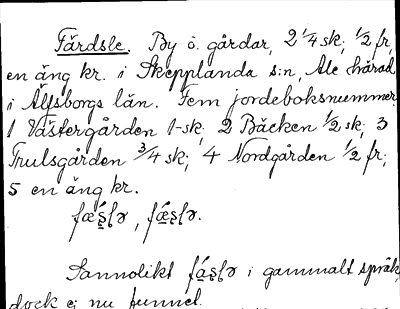 Färdsle. By o. gårdar, 2 1/4 sk; 1/2 fr,
en äng kr. i Skepplanda s:n, Ale härad
i Älfsborgs län. Fem jordeboksnummer:
1 Västergården 1-sk; 2 Bäcken 1/2 sk; 3
Trulsgården 3/4 sk; 4 Nordgården 1/2 fr;
5 en äng kr.
Sannolikt i gammalt språk,
dock ej nu funnet.